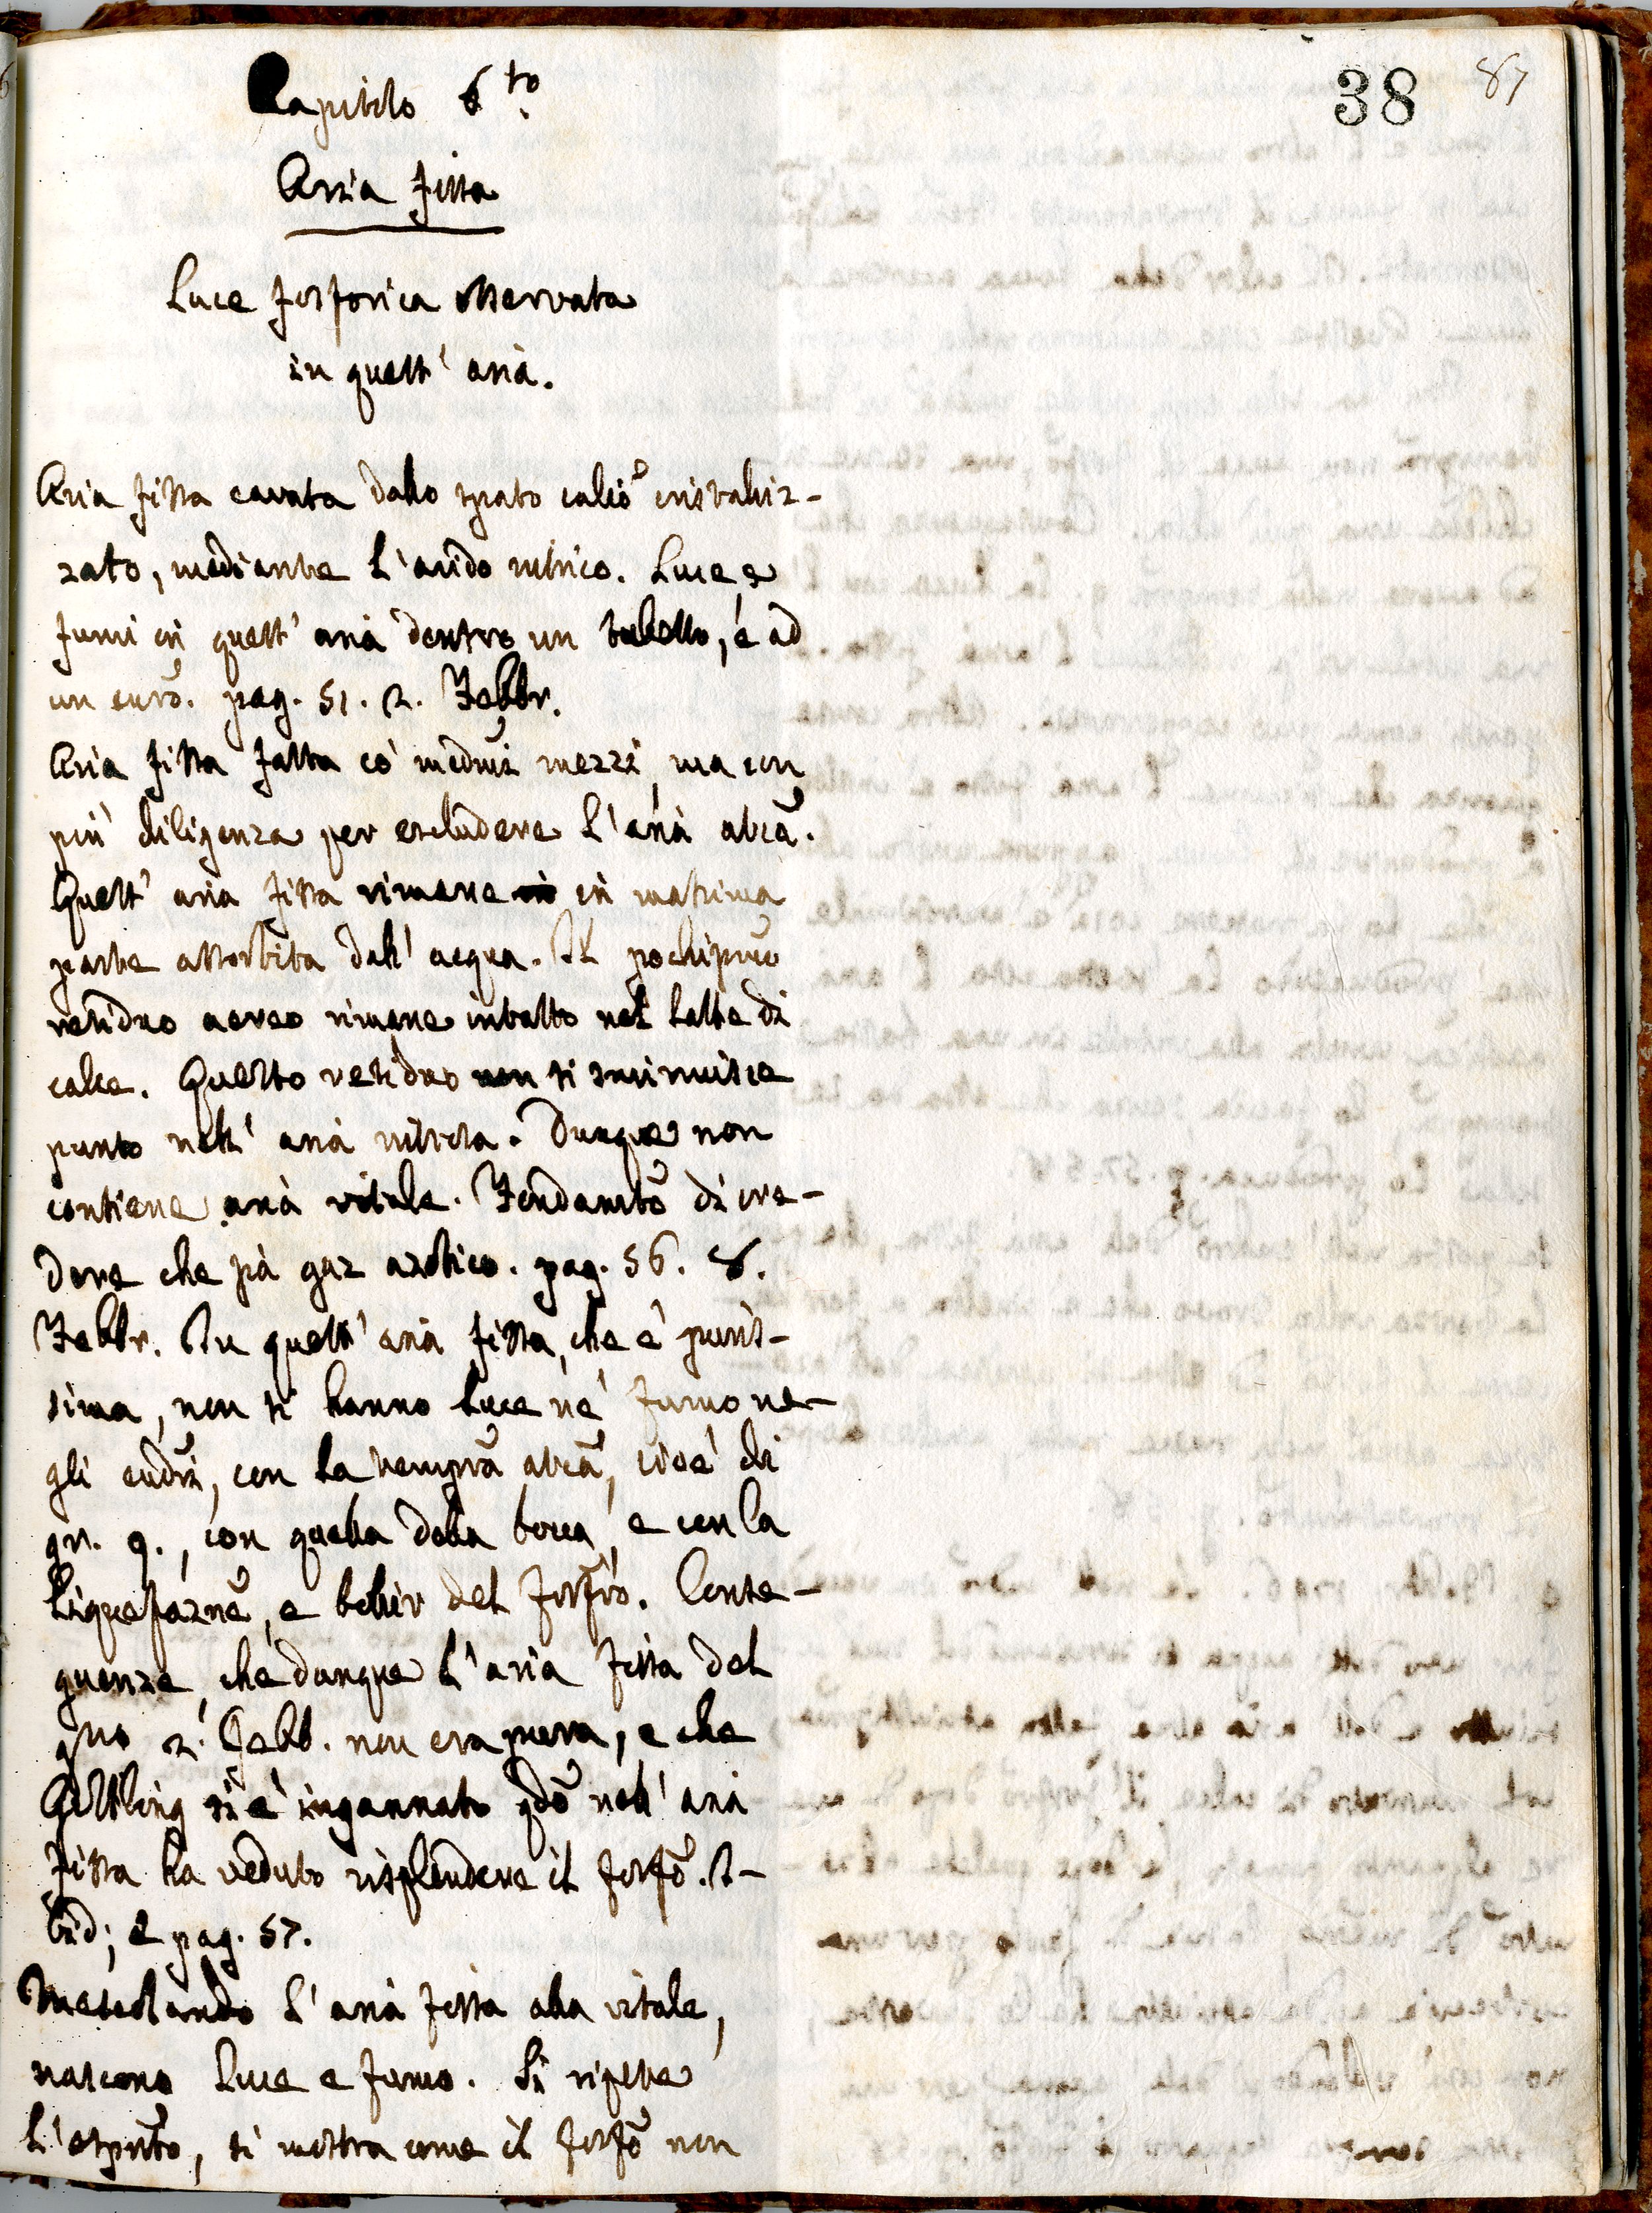 38 87
Capitolo 6.to
Aria fissa
Luce fosforica osservata
in quest' aria.
Aria fissa cavata dallo spato calcõ cristaliz-
zato, mediante l'acido nitrico. Luce e
fumi in quest' aria dentro un tubetto, é ad
un eurõ. pag. 51. 2. Febbr.
Aria fissa fatta co' medmi mezzi, ma con
più diligenza per escludere l'aria atcã.
Quest' aria fissa rimane in in massima
parte assorbita dall' acqua. Il pochipmo
residuo aereo rimane intatto nel latte di
calce. Questo residuo non si sminuisce
punto nell' aria nitrosa. Dunque non
contiene aria vitale. Fondamtõ di cre-
dere che sia gaz azotico. pag. 56. 8.
Febbr. In quest' aria fissa, che è puris-
sima, non si hanno luce né fumo ne-
gli eudri, con la temprã atcã, cioè di
gr. 9., con quella della bocca, e con la
liquefazne, e bollir del fosfrõ. Conse-
guenze, che dunque l'aria fissa del
gno 2. Febb. non era pura, e che
Gottling si è ingannato qdõ nell' aria
fissa ha veduto risplendere il fosfõ. I-
bid; e pag. 57.
Mescolando l'aria fissa alla vitale,
nascono luce e fumo. Si ripete
l'espmtõ, si mostra come il fosfõ non